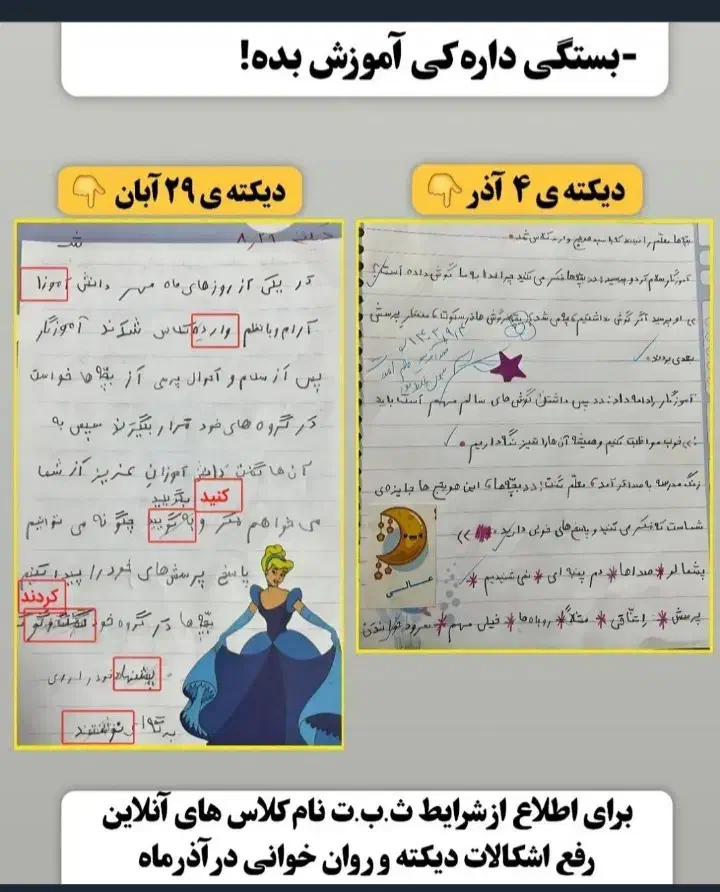 -بستگی داره کی آموزش بده!
دیکته ی ۴ آذر
دیکته ی ۲۹ آبان
بچه‌ها معلّم را دیدند که با سبد هویج وارد کلاس شد.
آموزگار سلام کرد و پرسید: بچه‌ها فکر می کنید چرا خدا به ما گوش داده است؟
پرسید اگر گوش نداشتیم چه می شد؟ منتظر پرسش
بعدی بودند.
آموزگار ادامه داد: پس داشتن گوش های سالم مهم است باید
خوب مواظبت کنیم و همیشه آن ها را تمیز نگه داریم.
زنگ مدرسه به صدا در آمد معلّم گفت: بچه‌ها این هویج ها جایزه‌ی
شماست که فکر می کنید و پاسخ های خوبی دارید.
عالی
صداها * دم پنبه ای * نمی شنیدیم *
پرسش * اتّفاقی * مثلاً * روباه ها * خیلی مهم * سرود خواندن
۸٫۲۹
در یکی از روزهای ماه مهر دانش آموزا
آرام و با نظم وارده کلاس شدند آموزگار
پس از سلام و احوال پرسی از بچّه ها خواست
در گروه های خود قرار بگیرند سپس به
آن ها گفت دانش آموزان عزیز از شما
کنید
می خواهم فکر و به گویید چگونه می توانیم
پاسخ پرسش های خود را پیدا کنیم
کردند
بچّه ها در گروه خود
پیشنهاد خود را روی
نوشتند
برای اطلاع ازشرایط ث.ب.ت نام کلاس های آنلاین
رفع اشکالات دیکته و روان خوانی در آذر ماه